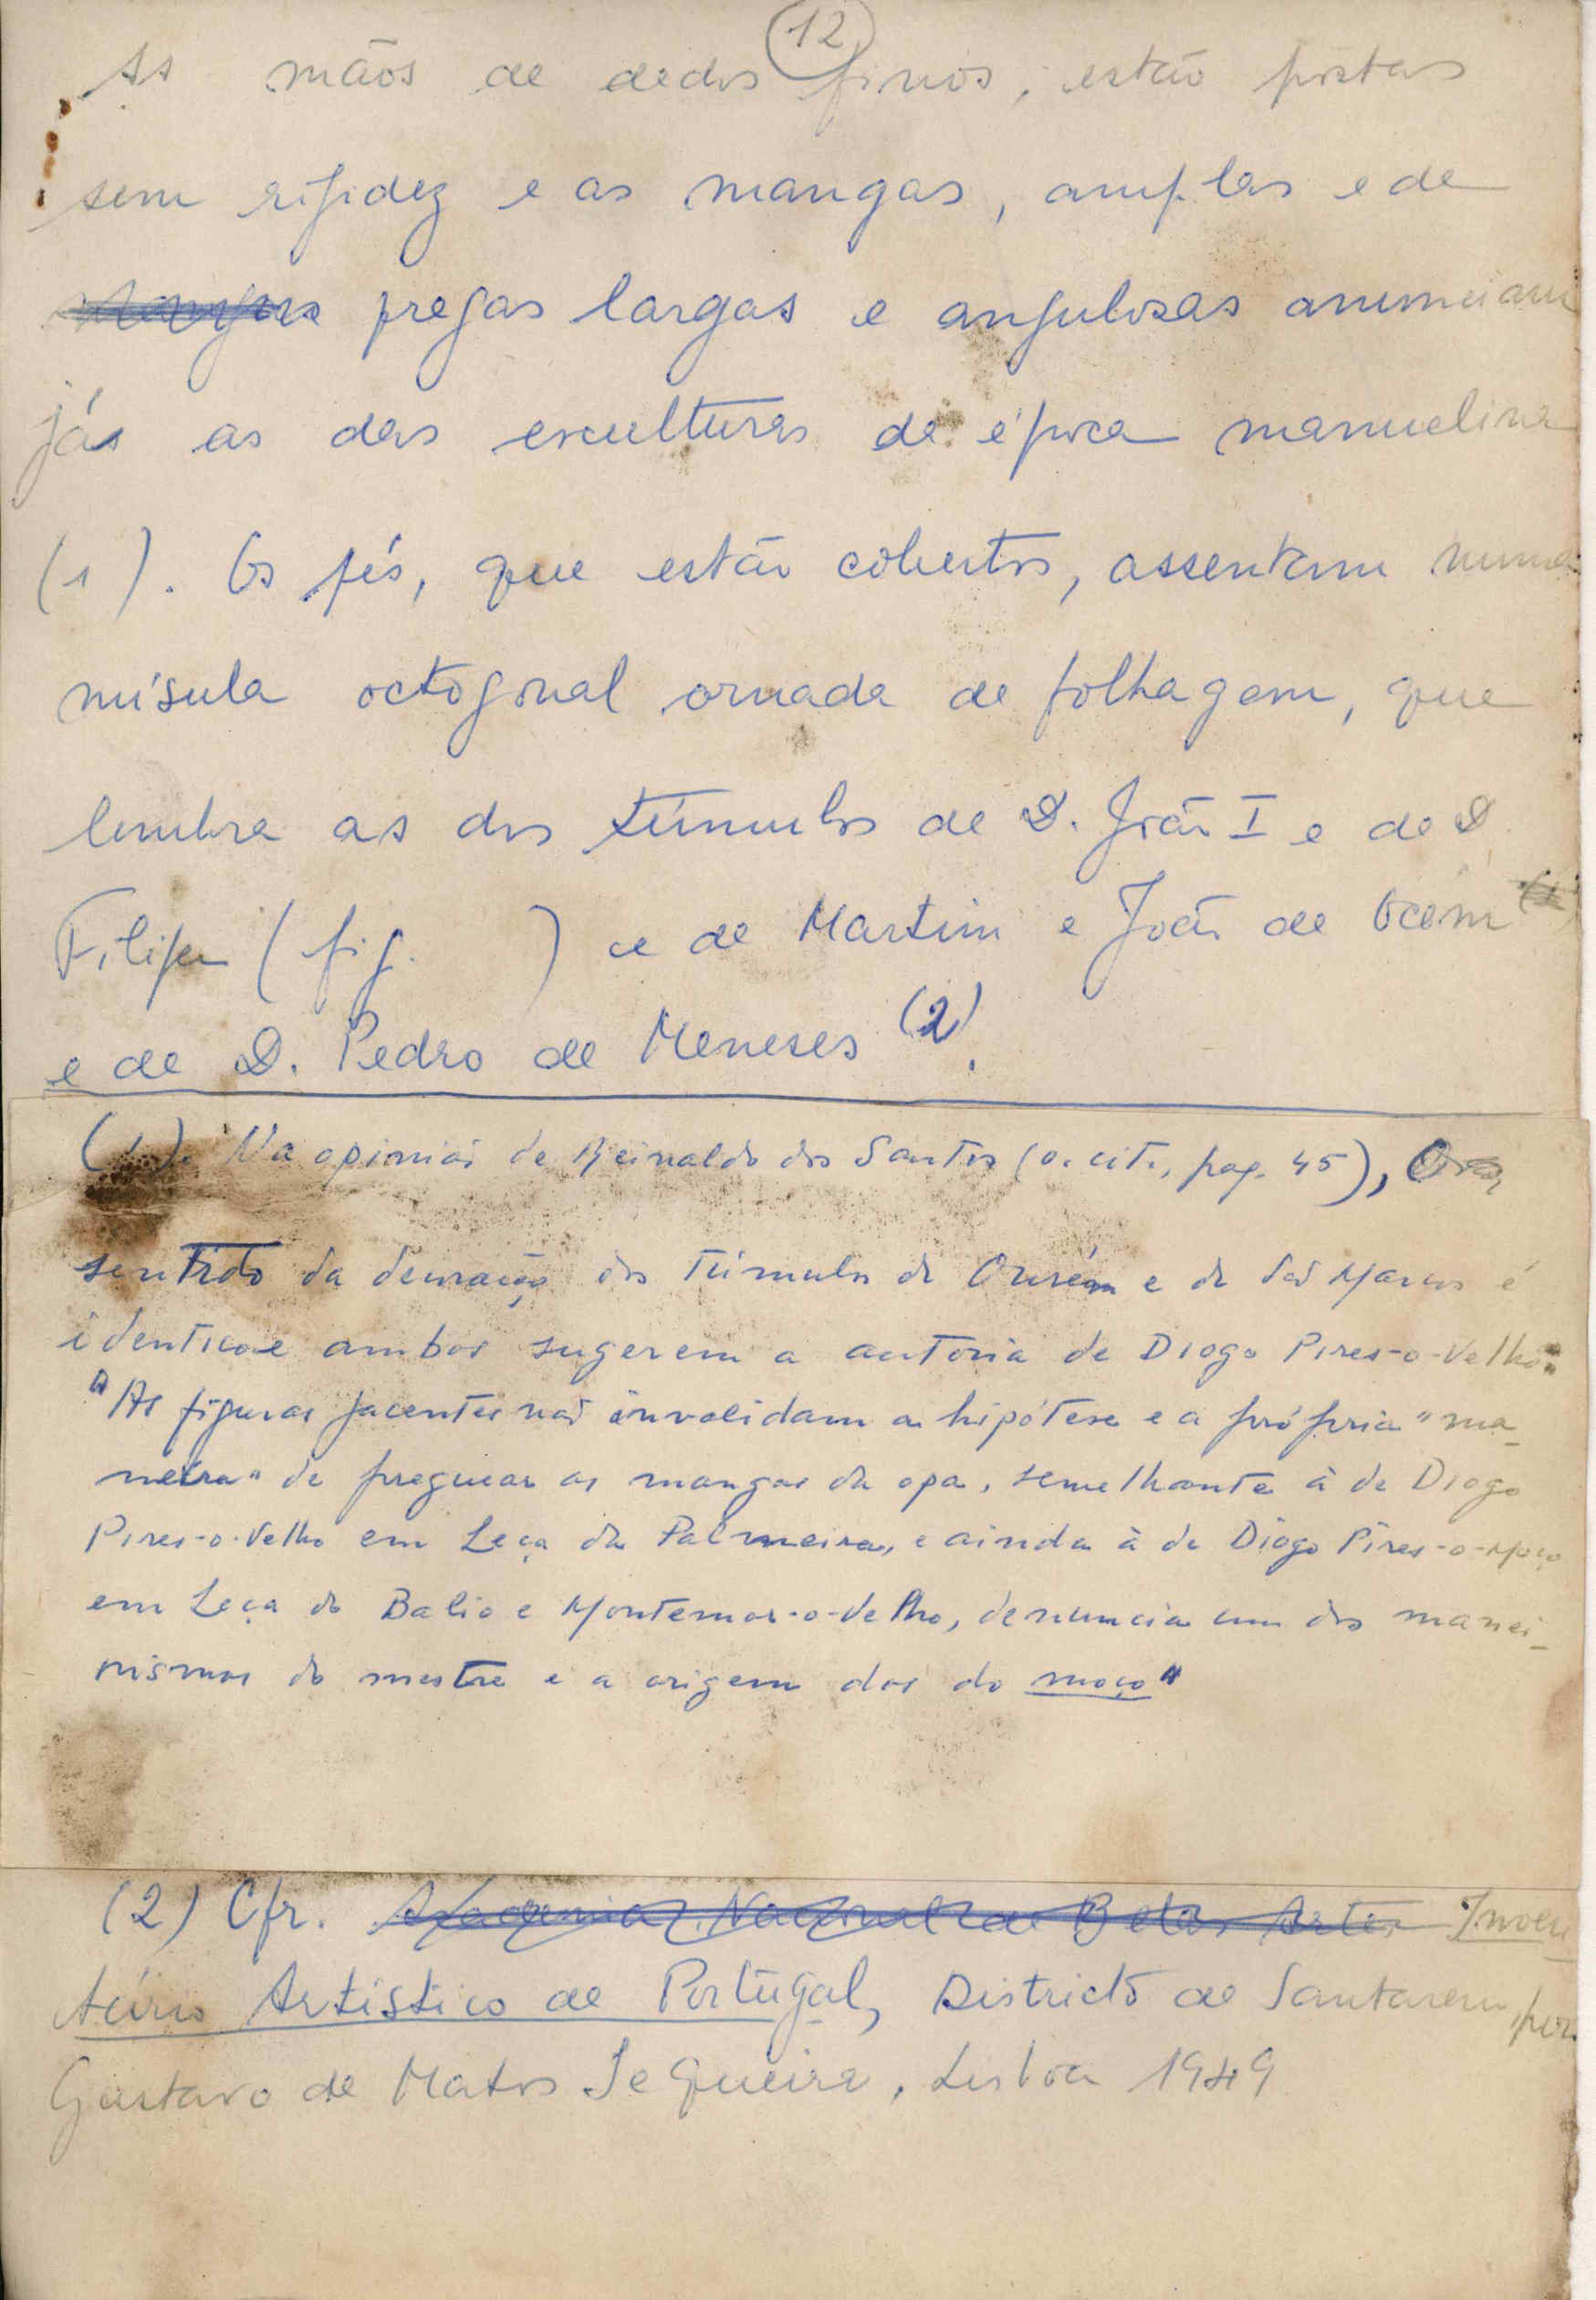 12
As mãos de dedos finos, estão postas
sem rigidez e as mangas, amplas e de
pregas largas e angulosas anunciam
já as das esculturas da época manuelina
(1). Os pés, que estão cobertos, assentam numa
mísula octogonal ornada de folhagem, que
lembra as dos túmulos de D. João I e de D.
Filipa (fig. ) e de Martim e João de Ocem
e de D. Pedro de Meneses (2).
(1). Na opinião de Reinaldo dos Santos (o. cit., pag. 45), O
sentido da decoração dos túmulos de Ourém e de São Marcos é
identico e ambos sugerem a autoria de Diogo Pires-o-Velho:
"As figuras jacentes não invalidam a hipótese e a própria "ma-
neira" de preguear as mangas da opa, semelhante à de Diogo
Pires-o-Velho em Leça da Palmeira, e ainda à de Diogo Pires-o-Moço
em Leça do Balio e Montemor-o-Velho, denuncia um dos manei-
rismos do mestre e a origem dos do moço"
(2) Cfr. Academia Nacional de Belas Artes Inven-
tário Artístico de Portugal, Districto de Santarem, por
Gustavo de Matos Sequeira, Lisboa 1949